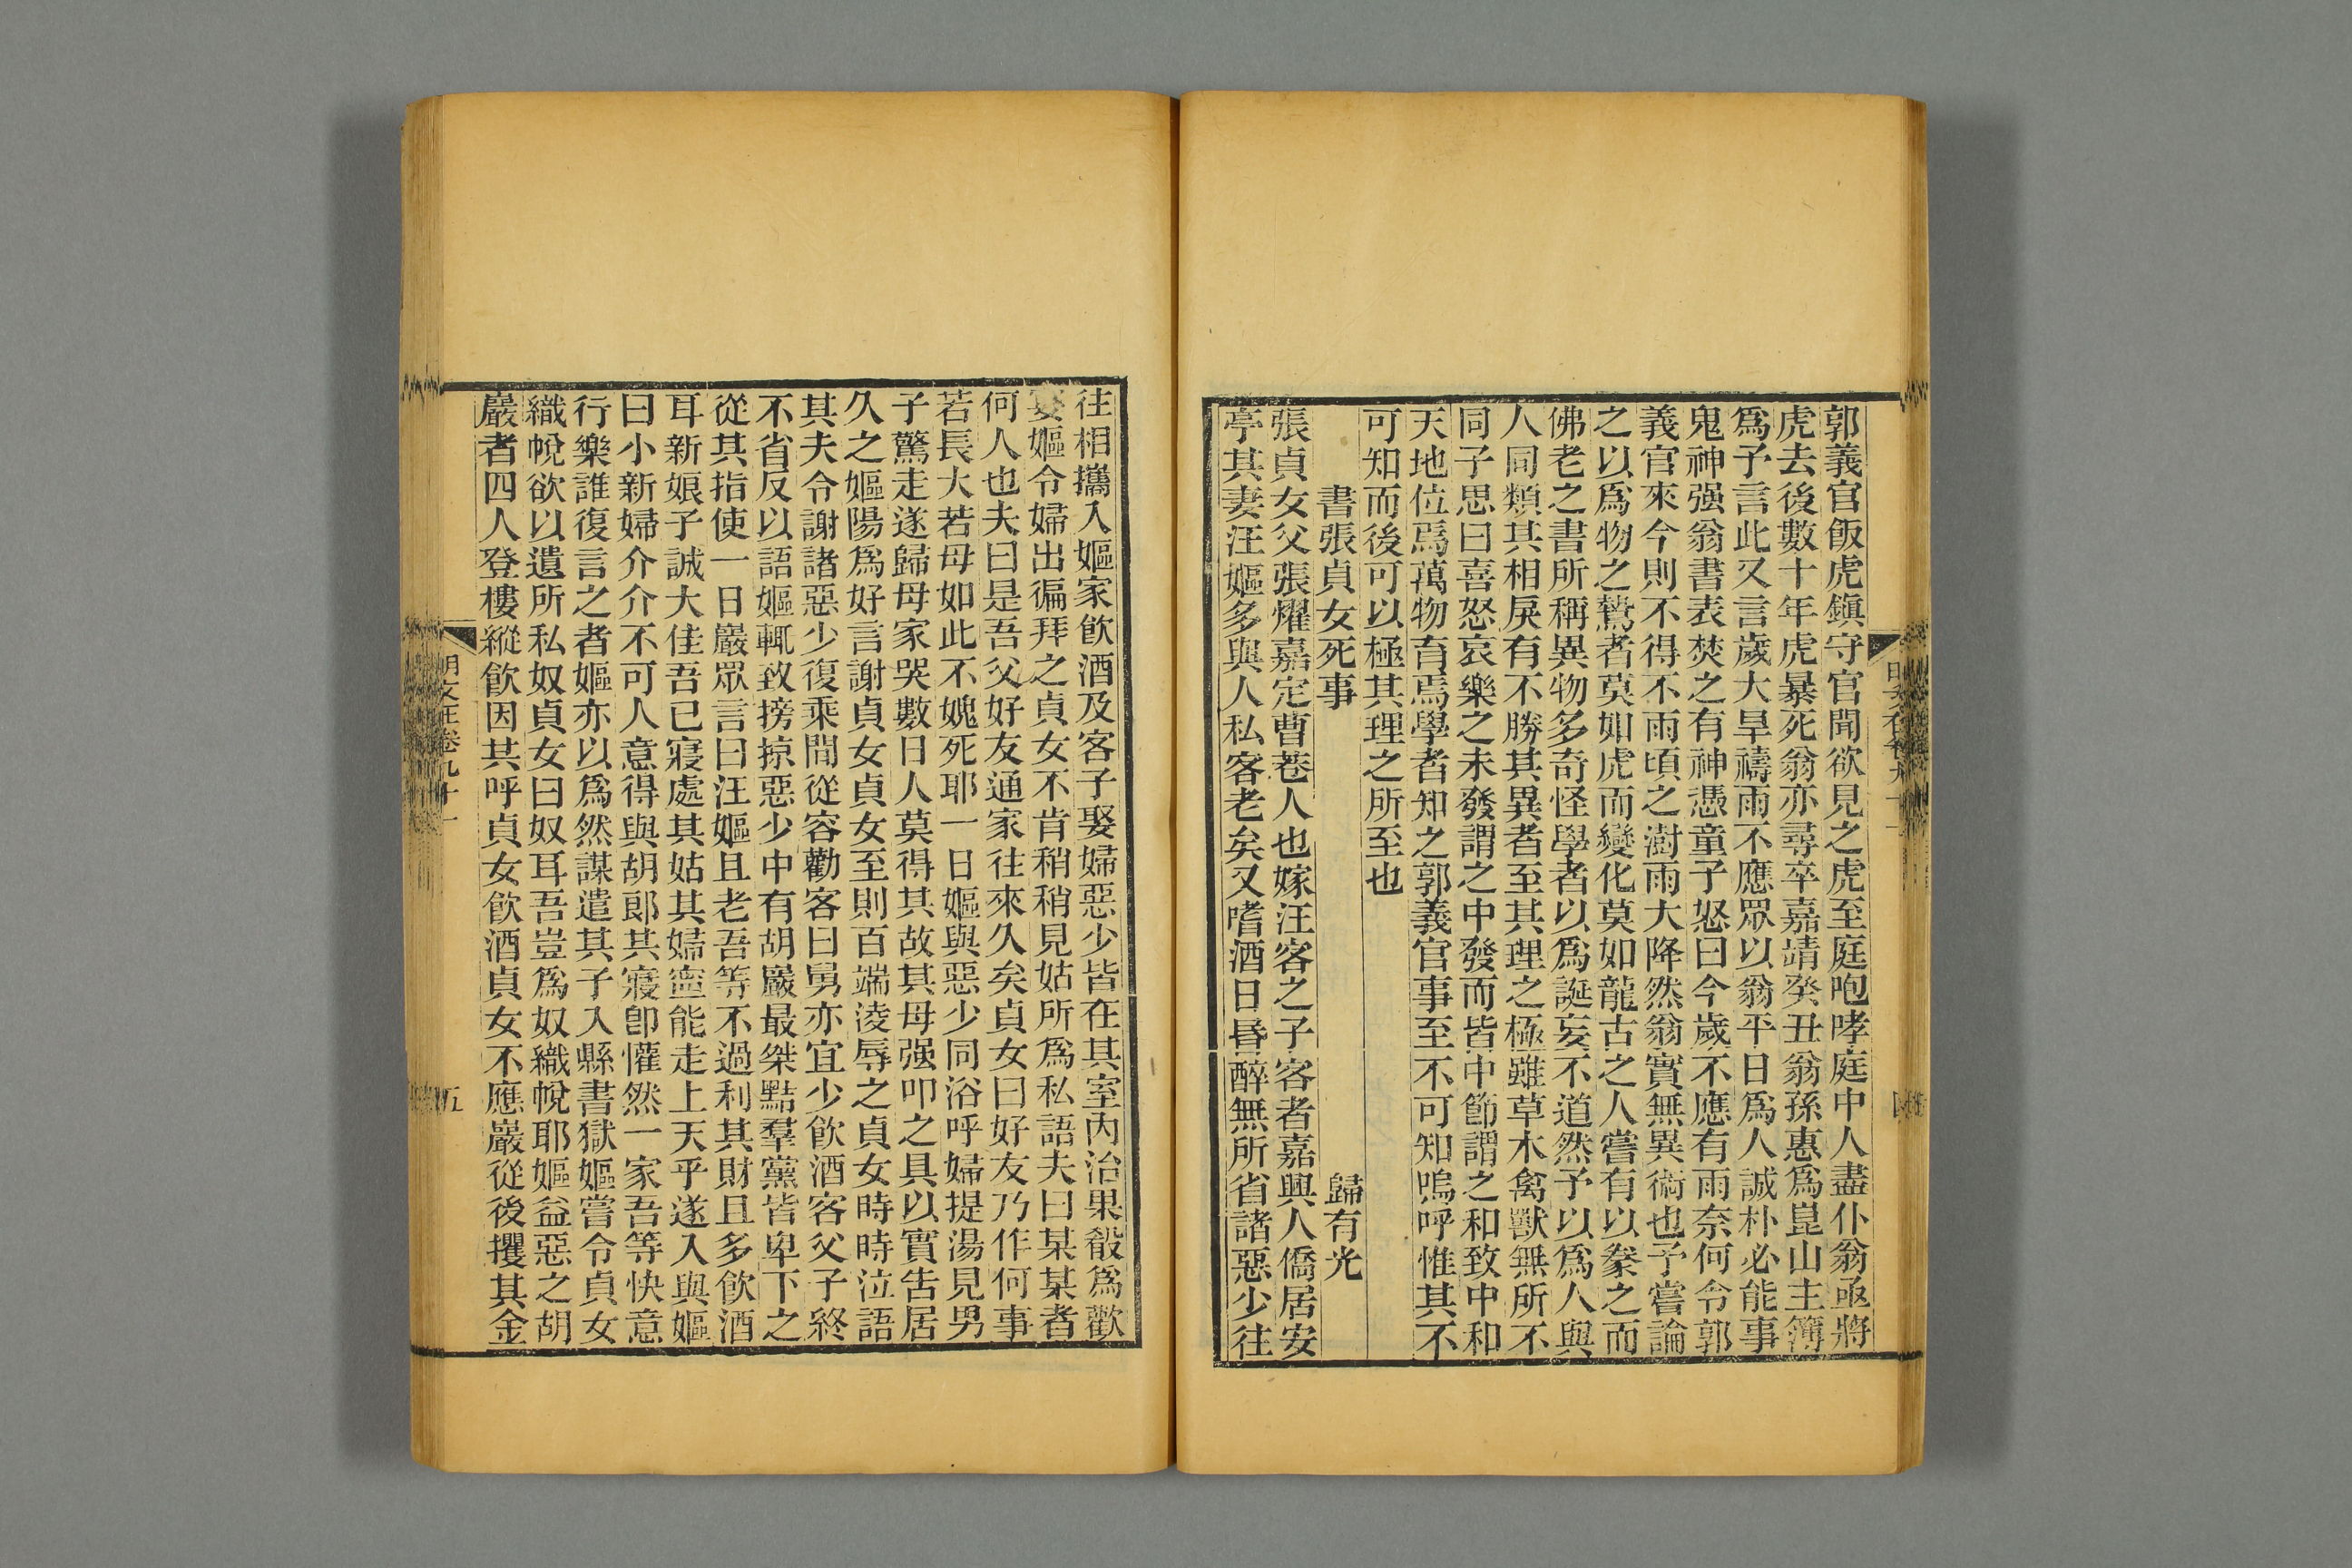 郭義官飯虎鎭守官聞欲見之虎至庭咆哮庭中人盡仆翁亟將
虎去後數十年虎暴死翁亦尋卒嘉靖癸丑翁孫惠爲崑山主簿
爲予言此又言歲大旱禱雨不應眾以翁平日爲人誠朴必能事
鬼神强翁書表焚之有神憑童子怒曰今歲不應有雨奈何令郭
義官來今則不得不雨頃之澍雨大降然翁實無異術也予嘗論
之以爲物之鷙者莫如虎而變化莫如龍古之人嘗有以豢之而
佛老之書所稱異物多奇怪學者以爲誕妄不道然予以爲人與
人同類其相戾有不勝其異者至其理之極雖草木禽獸無所不
同子思曰喜怒哀樂之未發謂之中發而皆中節謂之和致中和
天地位焉萬物育焉學者知之郭義官事至不可知嗚呼惟其不
可知而後可以極其理之所至也
書張貞女死事 歸有光
張貞女父張燿嘉定曹巷人也嫁汪客之子客者嘉興人僑居安
亭其妻汪嫗多與人私客老矣又嗜酒日昏醉無所省諸惡少往
四
往相攜入嫗家飮酒及客子娶婦惡少皆在其室內治果殽爲歡
宴嫗令婦出徧拜之貞女不肯稍稍見姑所爲私語夫曰某某者
何人也夫曰是吾父好友通家往來久矣貞女曰好友乃作何事
若長大若母如此不媿死耶一日嫗與惡少同浴呼婦提湯見男
子驚走遂歸母家哭數日人莫得其故其母强叩之具以實吿居
久之嫗陽爲好言謝貞女貞女至則百端淩辱之貞女時時泣語
其夫令謝諸惡少復乘間從容勸客曰舅亦宜少飮酒客父子終
不省反以語嫗輒致搒掠惡少中有胡巖最桀黠羣黨皆卑下之
從其指使一日巖眾言曰汪嫗且老吾等不過利其財且多飮酒
耳新娘子誠大佳吾已寢處其姑其婦寧能走上天乎遂入與嫗
曰小新婦介介不可人意得與胡郞共寢卽懽然一家吾等快意
行樂誰復言之者嫗亦以爲然謀遣其子入縣書獄嫗嘗令貞女
織帨欲以遺所私奴貞女曰奴耳吾豈爲奴織帨耶嫗益惡之胡
巖者四人登樓縱飮因共呼貞女飮酒貞女不應巖從後攫其金
明文在卷九十一 五